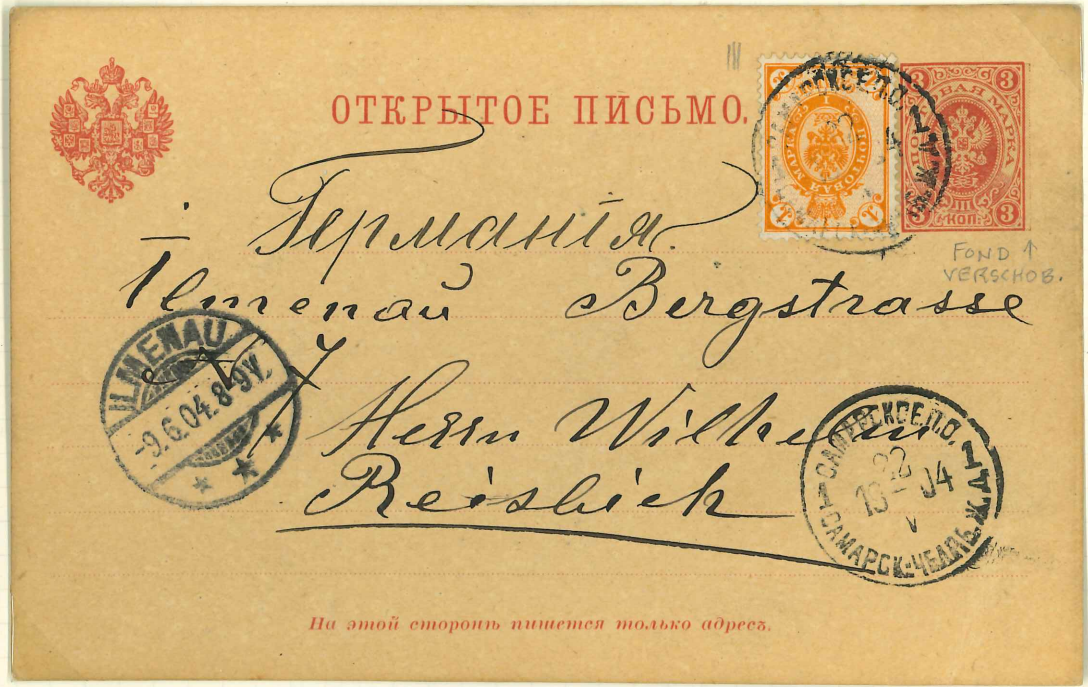 ОТКРЫТОЕ ПИСЬМО.
3 3
МАРКА
КОП.
3 3
ПОЧТОВАЯ МАРКА
1 1
FOND ↑
VERSCHOB.
Германія.
Ilmenau Bergstrasse
7
Herrn Wilhelm
ILMENAU
-9.6.04. 8-9V.
* * *
САМАРСКОЕ П.О.
22
13 - 04
V
САМАРСК.-ЧЕЛЯБ. Ж.Д.
На этой сторонѣ пишется только адресъ.